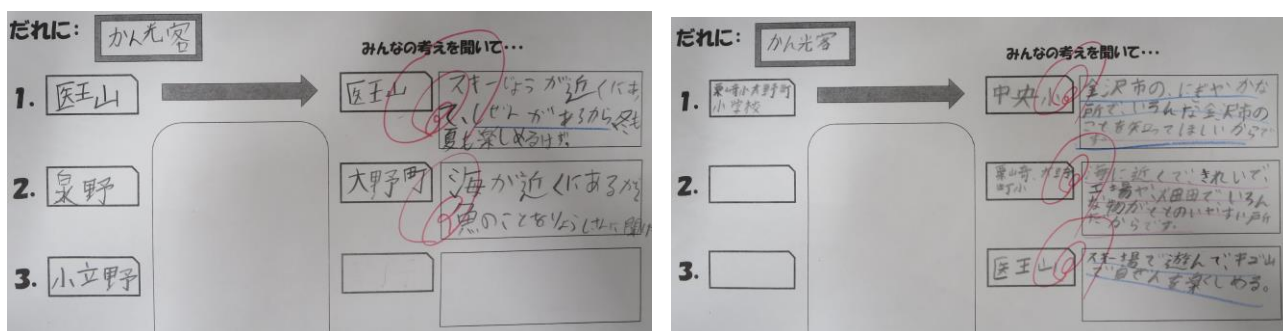 だれに：
かん光客
みんなの考えを聞いて・・・
1.
医王山
医王山
スキーじょうが近くにあ
しぜんがあるから冬も
夏も楽しめるけだ。
2.
泉野
大野町
海が近くにあるから
魚のことをりょうしさんに聞け
3.
小立野
だれに：
かん光客
みんなの考えを聞いて・・・
1.
粟崎小大野町
小学校
中央小
金沢市の、にぎやかな
所で、いろんな金沢市の
ことを知ってほしいからで
す。
2.
粟崎
町小
海に近くて、きれいで、
工場や、田で、いろん
な物がととのいやすい所
だからです。
3.
医王山
スキー場で遊んで、キゴ山
で自ぜんを楽しめる。